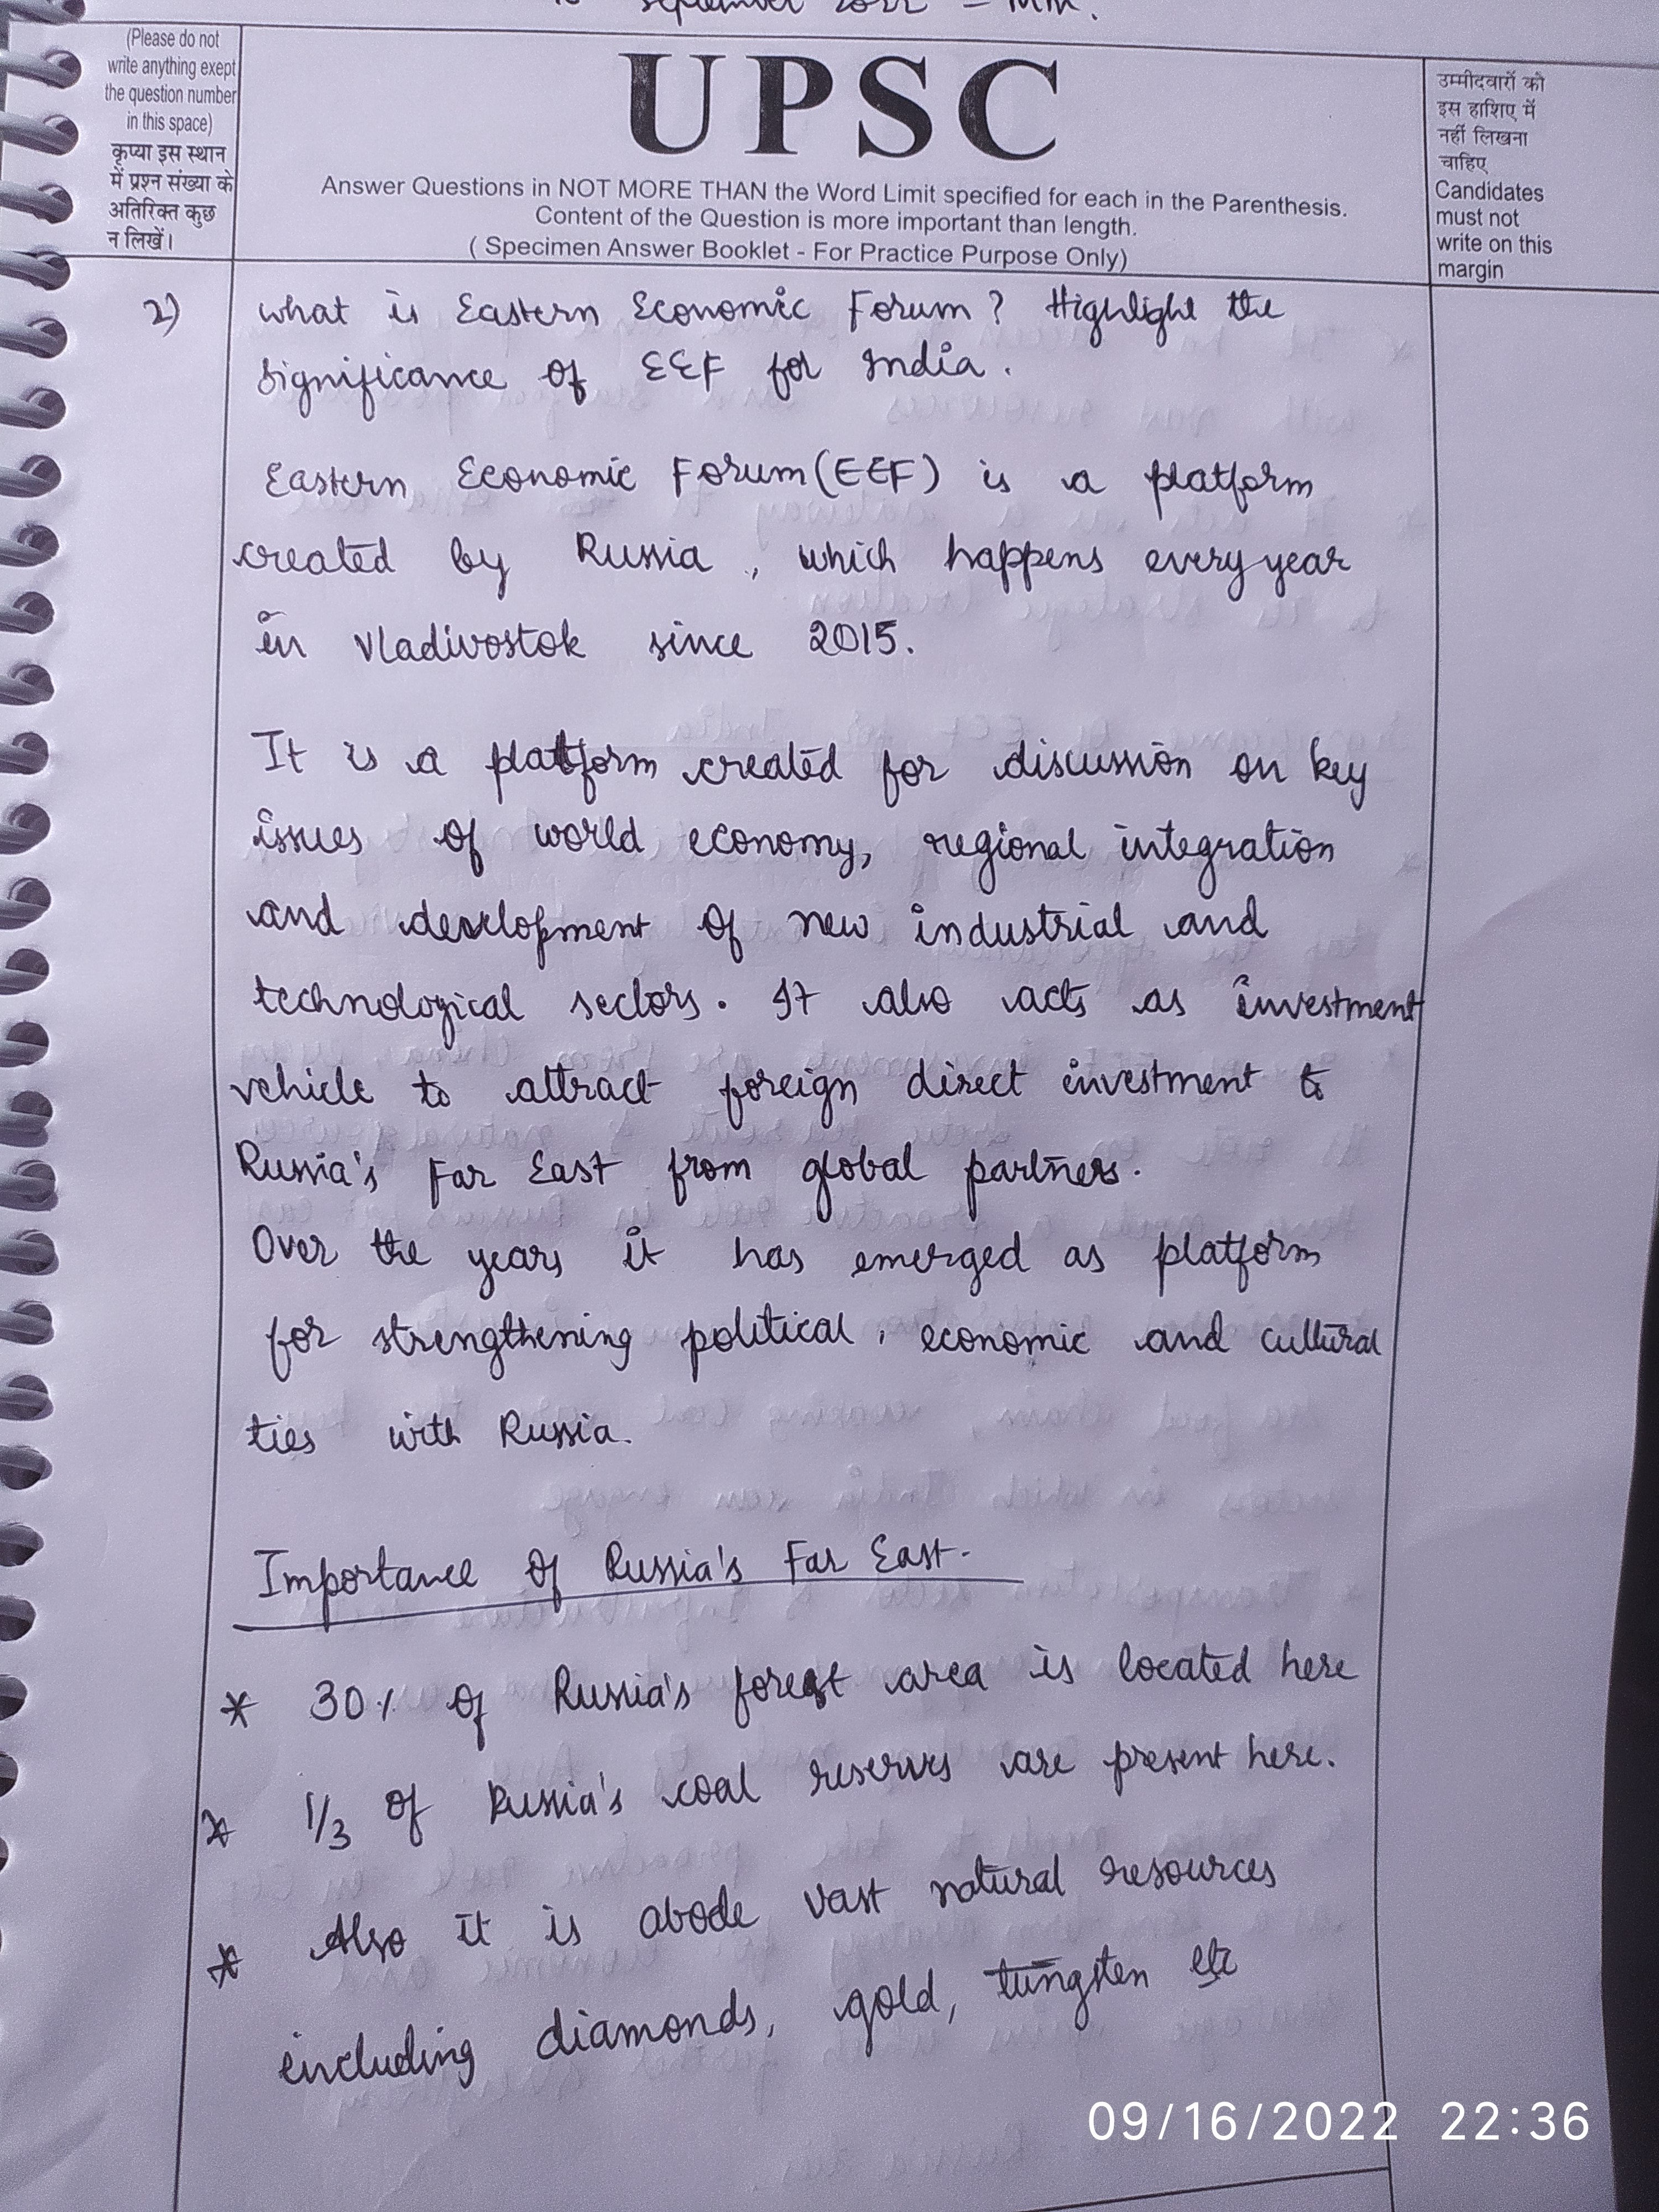 September 2022 - MM.
(Please do not
write anything exept
the question number
in this space)
कृप्या इस स्थान
में प्रश्न संख्या के
अतिरिक्त कुछ
न लिखें।
UPSC
Answer Questions in NOT MORE THAN the Word Limit specified for each in the Parenthesis.
Content of the Question is more important than length.
( Specimen Answer Booklet - For Practice Purpose Only)
उम्मीदवारों को
इस हाशिए में
नहीं लिखना
चाहिए
Candidates
must not
write on this
margin
2) What is Eastern Economic Forum? Highlight the
significance of EEF for India.
Eastern Economic Forum(EEF) is a platform
created by Russia, which happens every year
in Vladivostok since 2015.
It is a platform created for discussion on key
issues of world economy, regional integration
and development of new industrial and
technological sectors. It also acts as investment
vehicle to attract foreign direct investment to
Russia's Far East from global partners.
Over the years it has emerged as platform
for strengthening political, economic and cultural
ties with Russia.
Importance of Russia's Far East-
* 30% of Russia's forest area is located here
* 1/3 of Russia's coal reserves are present here.
* Also it is abode vast natural resources
including diamonds, gold, tungsten etc
09/16/2022 22:36